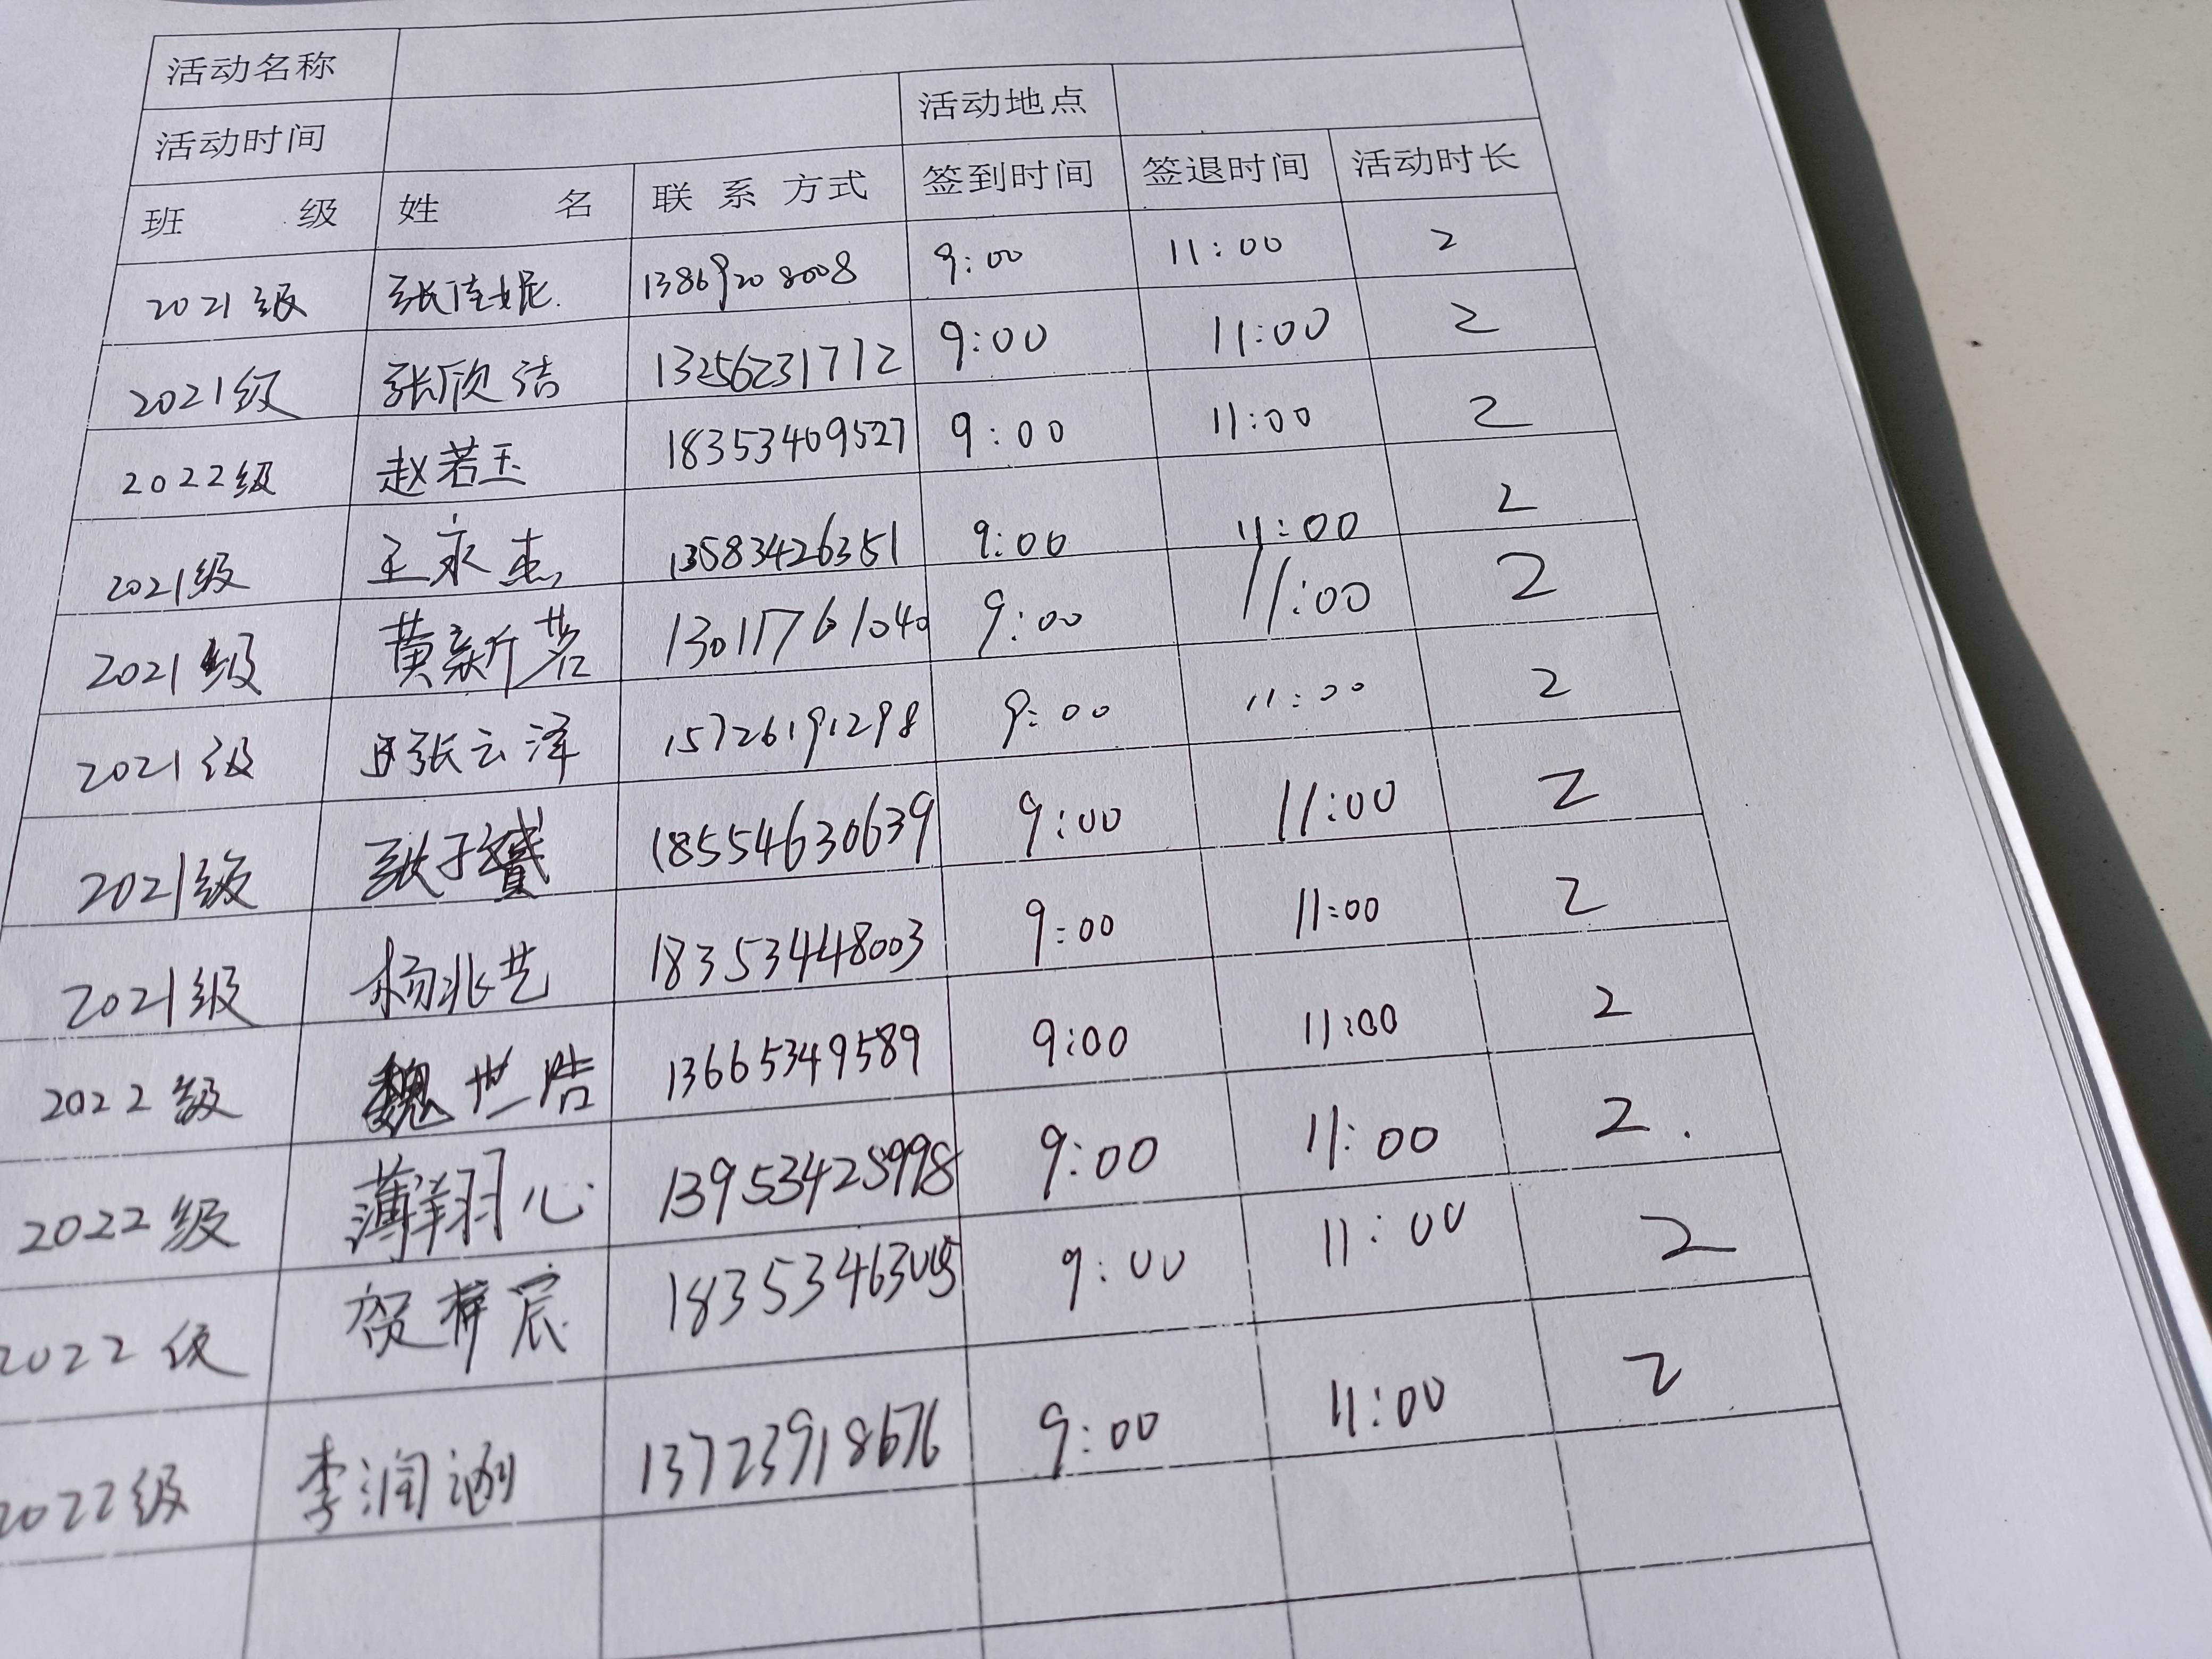 活动名称
活动时间 活动地点
班 级 姓 名 联 系 方式 签到时间 签退时间 活动时长
2021级 张佳妮 13869208008 9:00 11:00 2
2021级 张欣洁 13256231712 9:00 11:00 2
2022级 赵若玉 18353409527 9:00 11:00 2
2021级 王永杰 13583426351 9:00 11:00 2
2021级 黄新茗 13011761040 9:00 11:00 2
2021级 张云泽 15726191298 9:00 11:00 2
2021级 18554630639 9:00 11:00 2
2021级 杨兆艺 18353448003 9:00 11:00 2
2022级 魏世浩 13665349589 9:00 11:00 2
2022级 薄翔心 13953425998 9:00 11:00 2.
2022级 贺梓宸 9:00 11:00 2
2022级 李润涵 13723918676 9:00 11:00 2